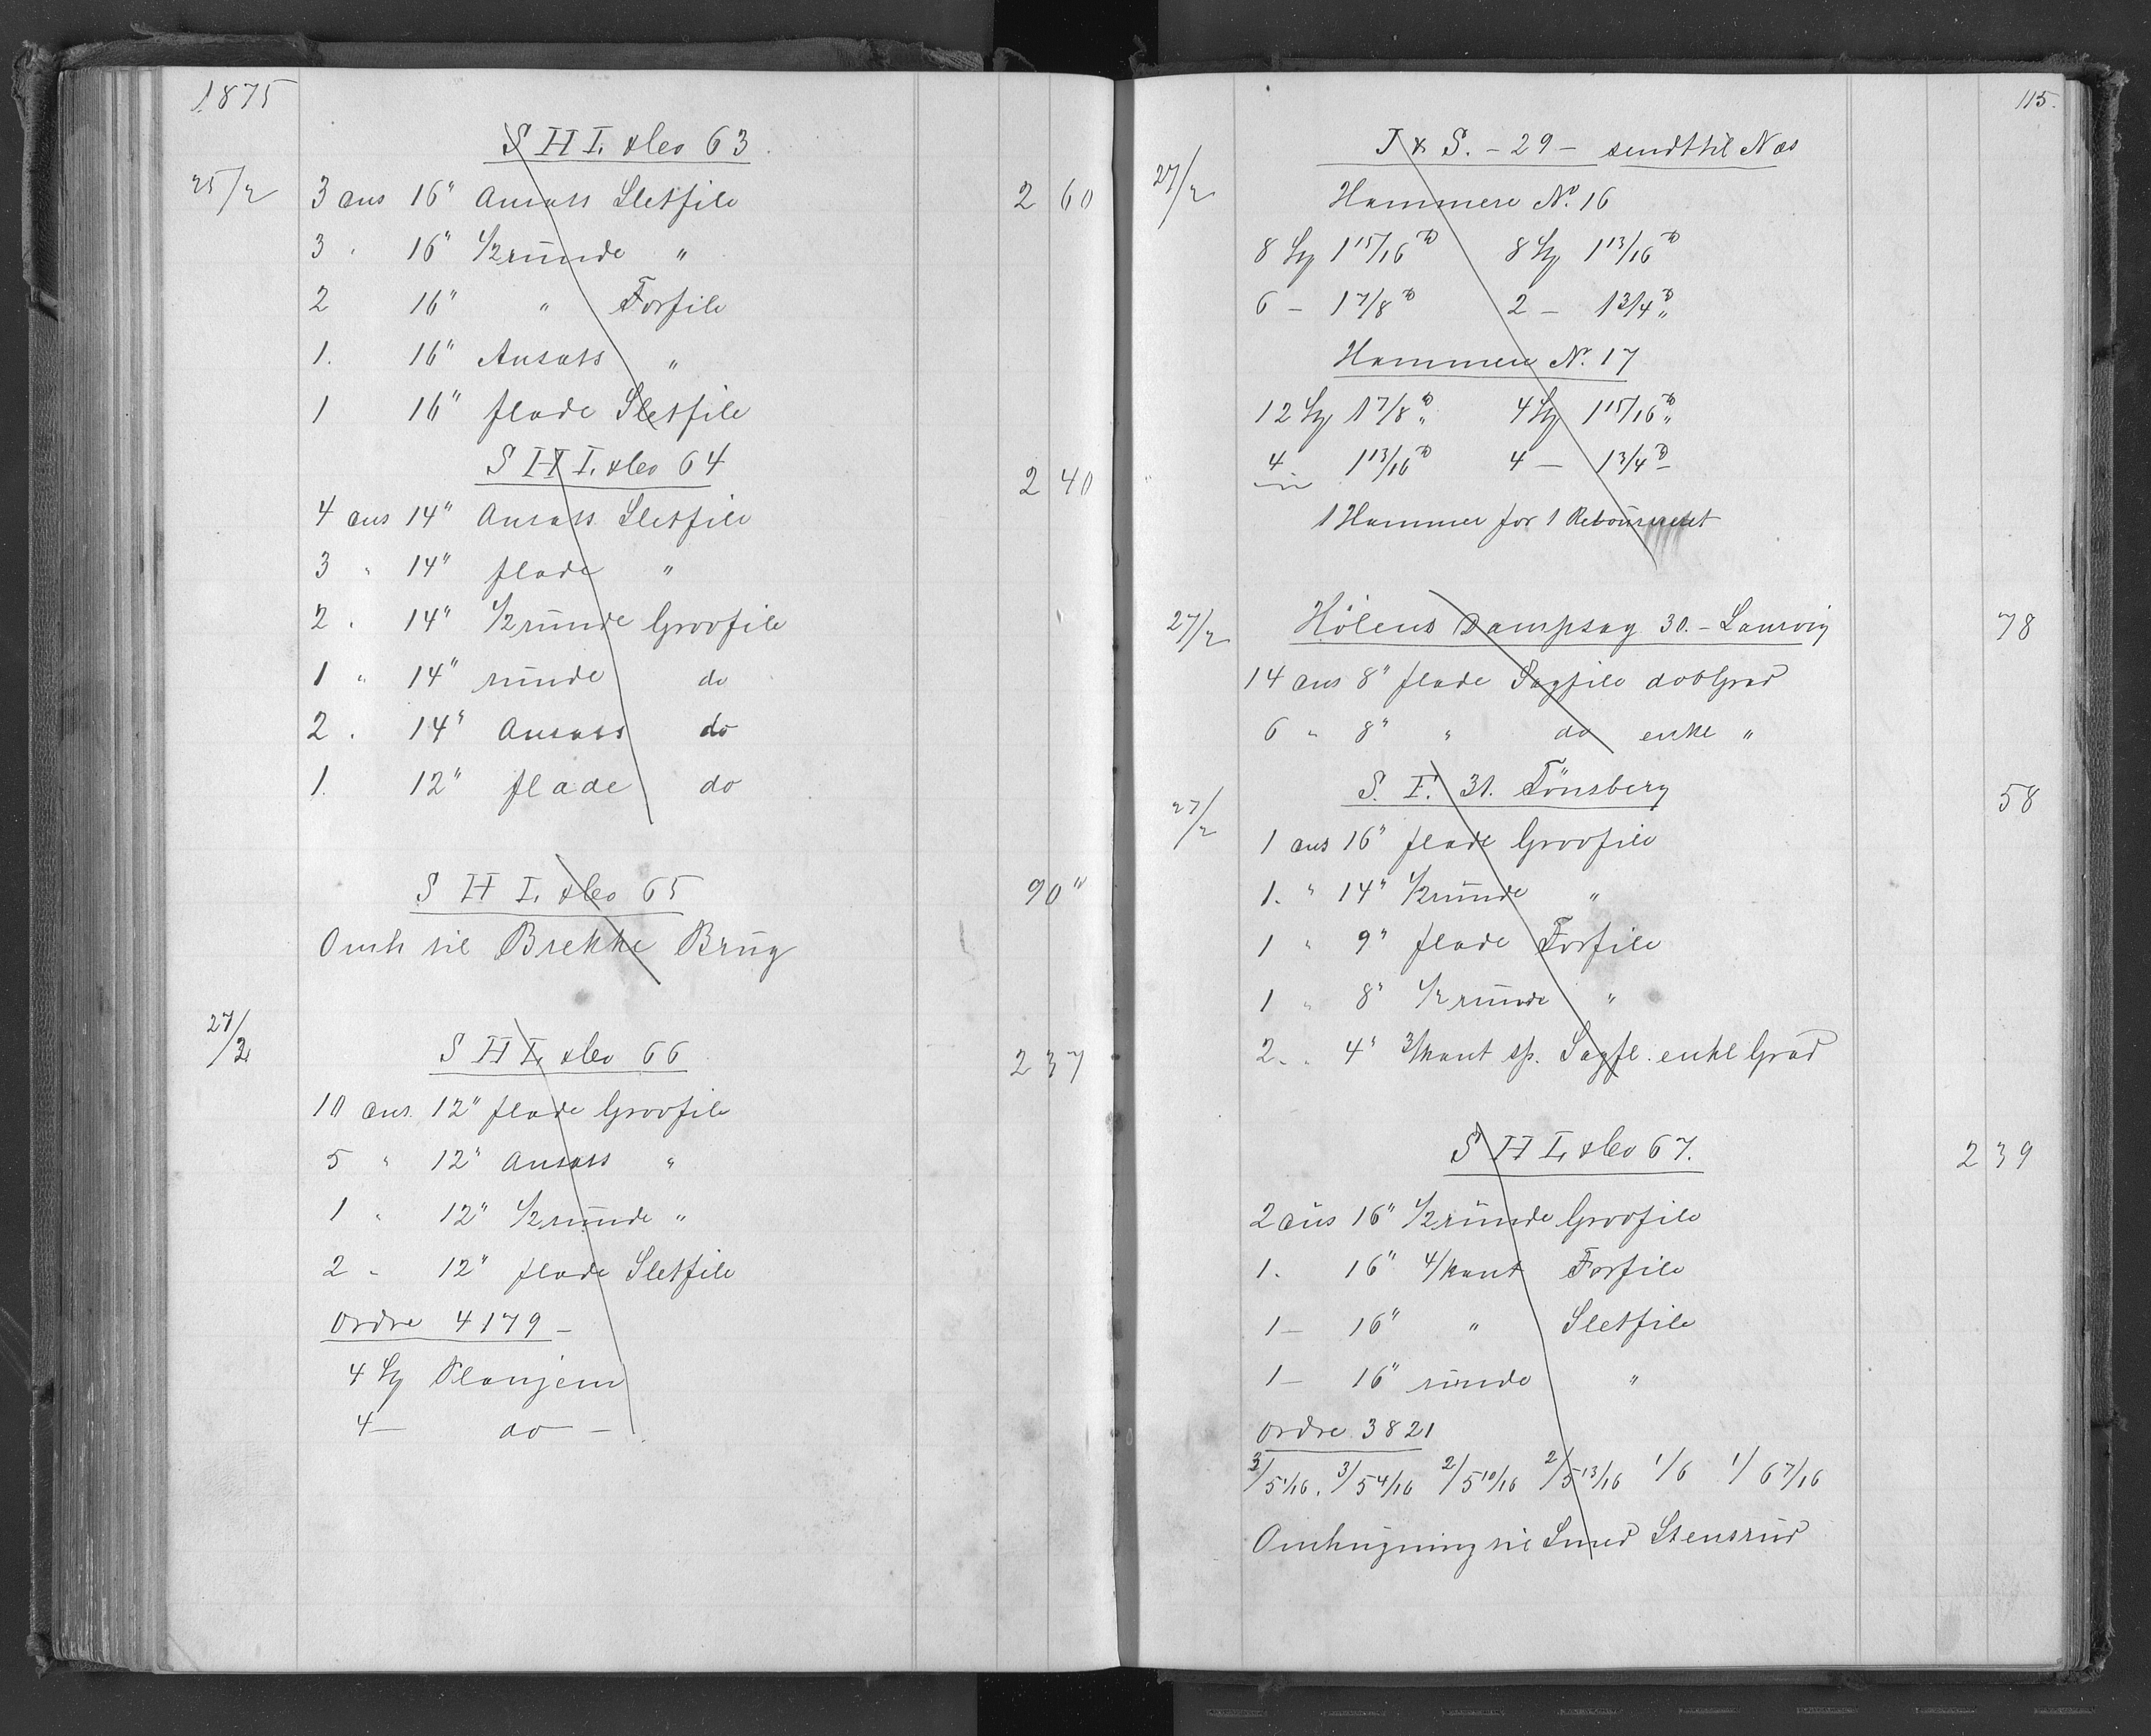 1875
S H I. & Co 63
25/2 3 aus 16" Ansats Sletfile 2 60
3 " 16" 1/2 runde "
2 16" " Forfile
1. 16" Ansats "
1 16" flade Sletfile
S H I. & Co 64 2 40
4 aus 14" Ansats Sletfile
3 " 14" flade "
2 " 14" 1/2 runde Grovfile
1 " 14" runde do
2 . 14" Ansats do
1. 12" flade do
S H I. & Co 65 90 "
Omh til Brekke Brug
27/2 S H I. & Co 66 2 37
10 aus. 12" flade Grovfile
5 " 12" Ansats "
1 " 12" 1/2 runde "
2 " 12" flade Sletfile
Ordre 4179 -
4 St Planjern
4 - do -
115.
27/2 J & S. - 29 - sendt til Næs
Hammere No. 16
8 St 1 15/16 " 8 St 1 13/16 "
6 - 1 7/8 " 2 - 1 3/4 "
Hammere No. 17
12 St 1 7/8 " 4 St 1 15/16 "
4 1 13/16 " 4 - 1 3/4 "
1 Hammer for 1
27/2 Hölens Dampsag 30. - Laurvig 78
14 aus 8" flade Sagfile dobGrad
6 " 8" " do enkl "
27/2 S. F. 31. Tönsberg 58
1 aus 16" flade Grovfile
1. " 14" 1/2 runde "
1 " 9" flade Forfile
1 " 8" 1/2 runde "
2. " 4" 3/kant sp. Sagfl. enkl Grad
S H I. & Co 67. 2 39
2 aus 16" 1/2 runde Grovfile
1. 16" 4/kant Forfile
1 - 16" " Sletfile
1 - 16" runde "
Ordre 3821
3/5 1/16. 3/5 4/16 2/5 10/16 2/5 13/16 1/6 1/6 7/16
Omhugning til Smed Stensrud